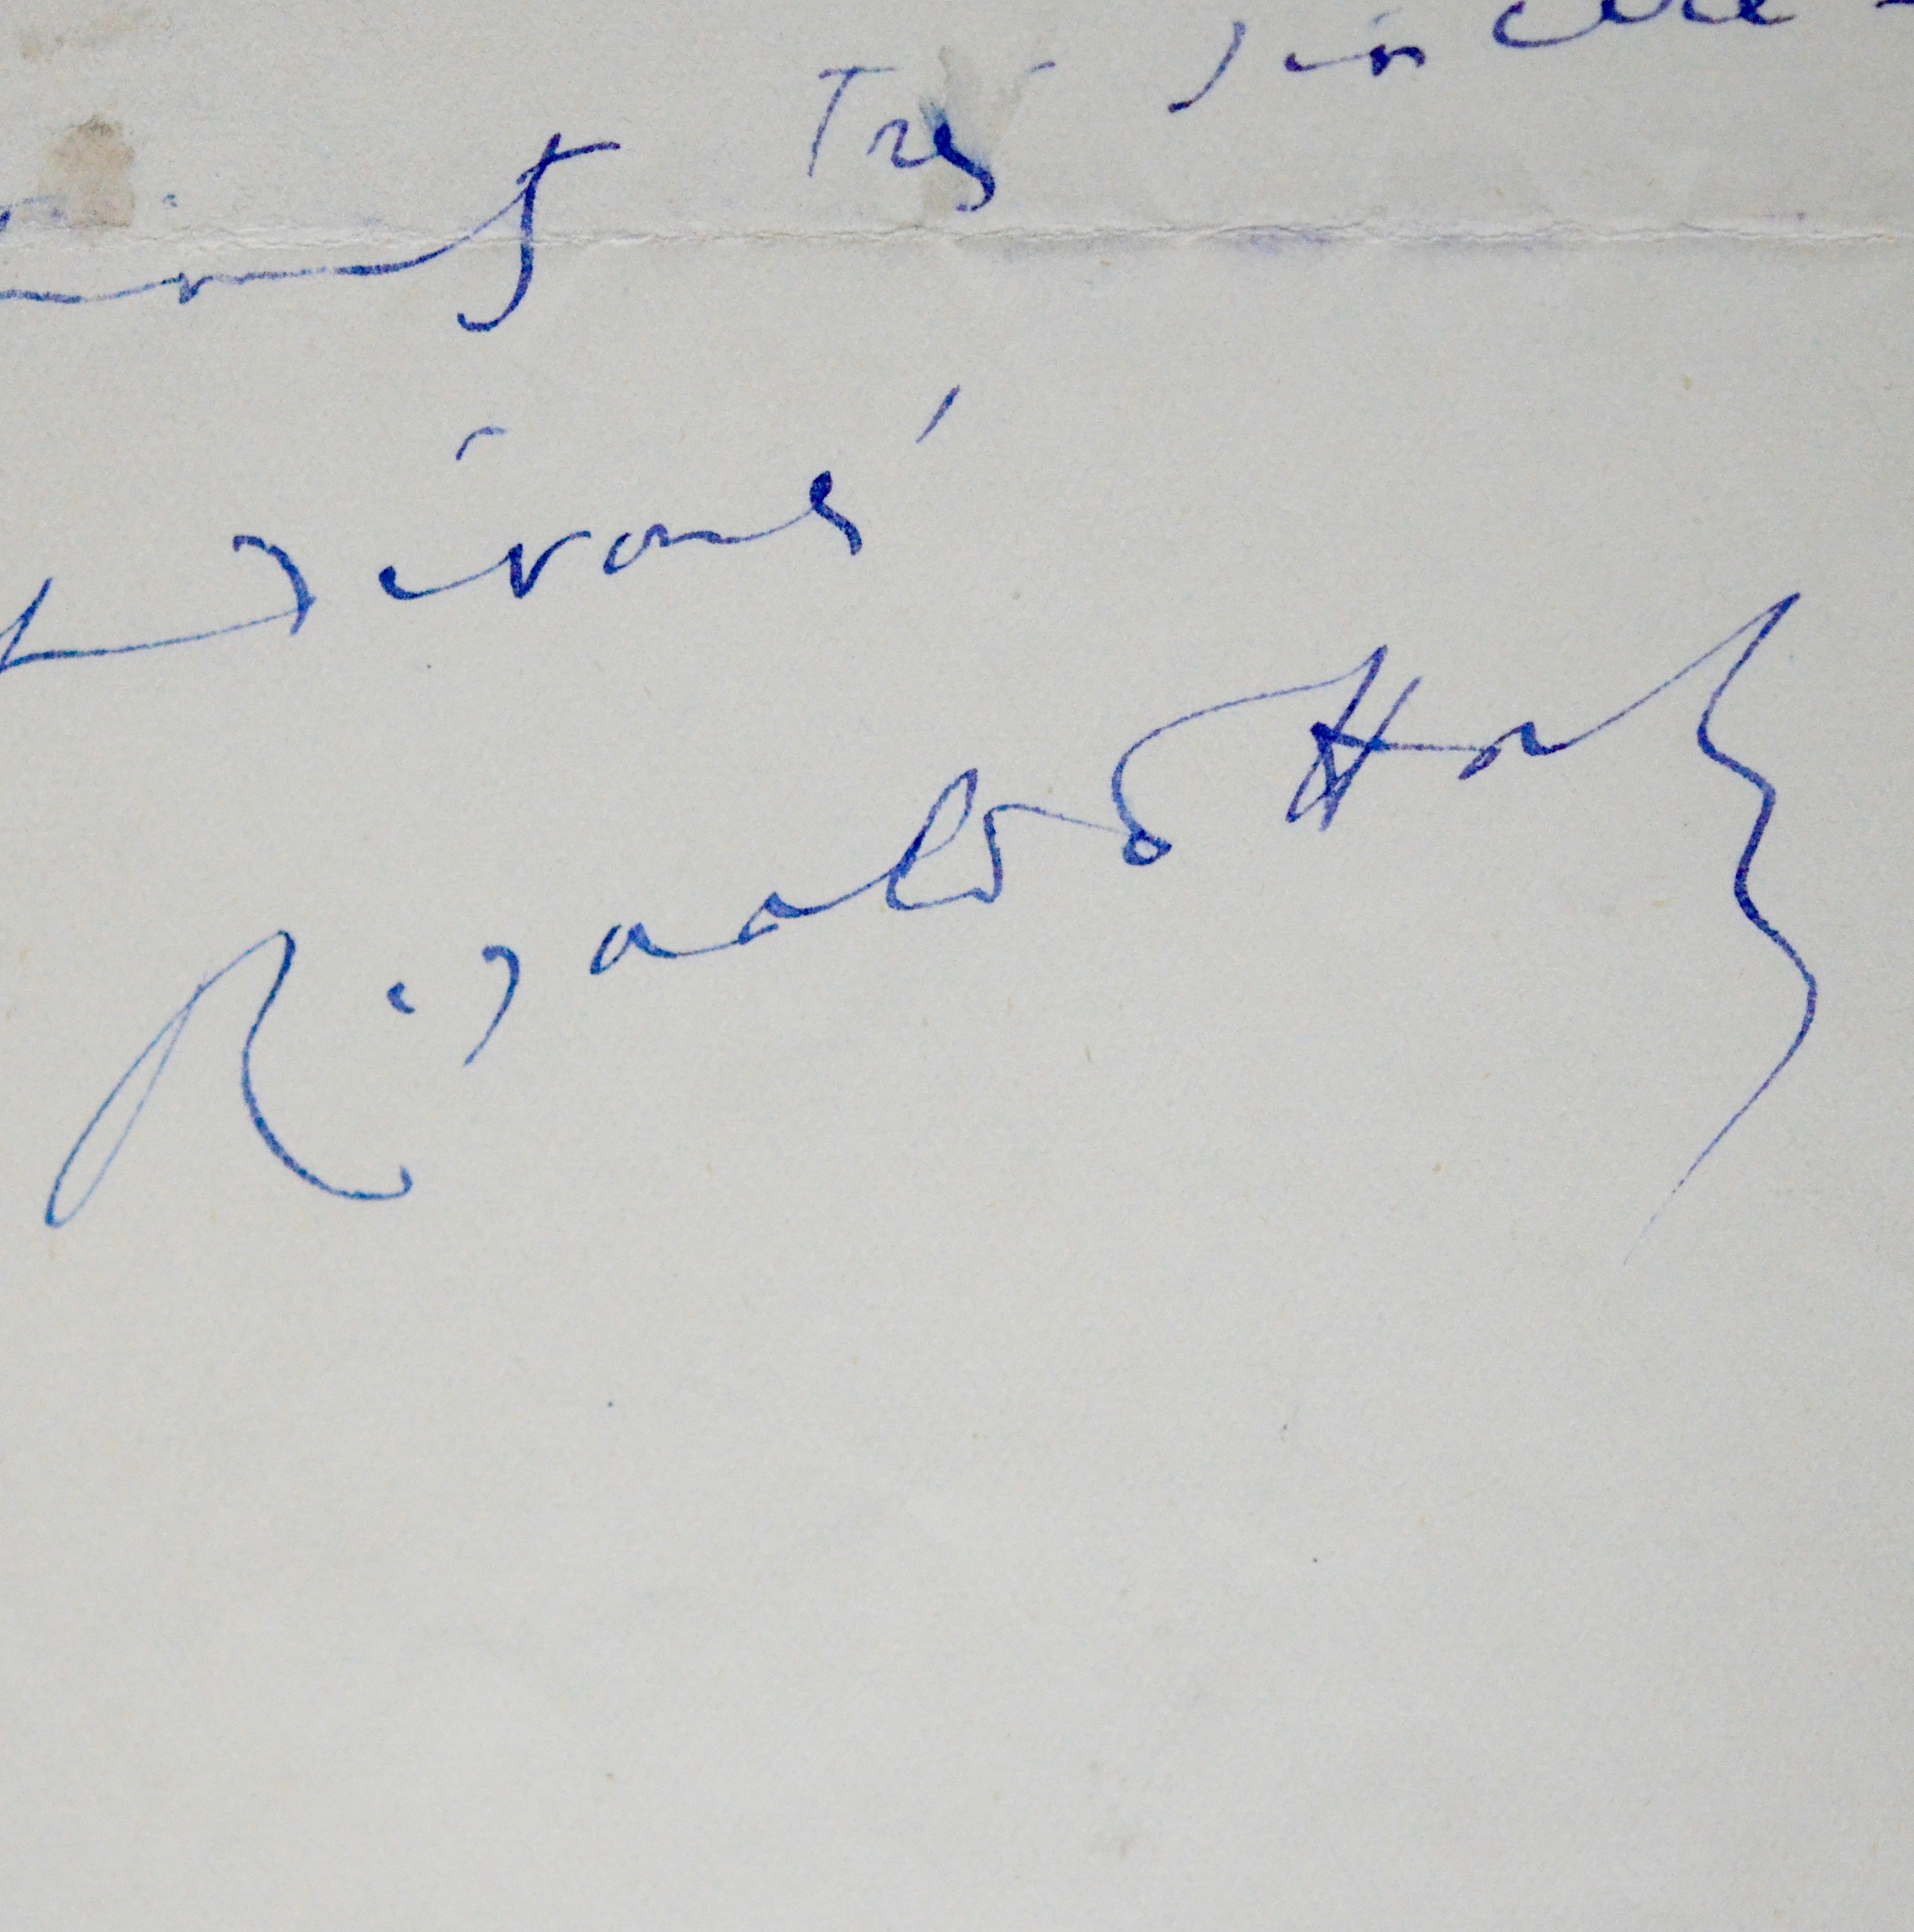 Très sincère-
ment
dévoué
Reynaldo Hahn